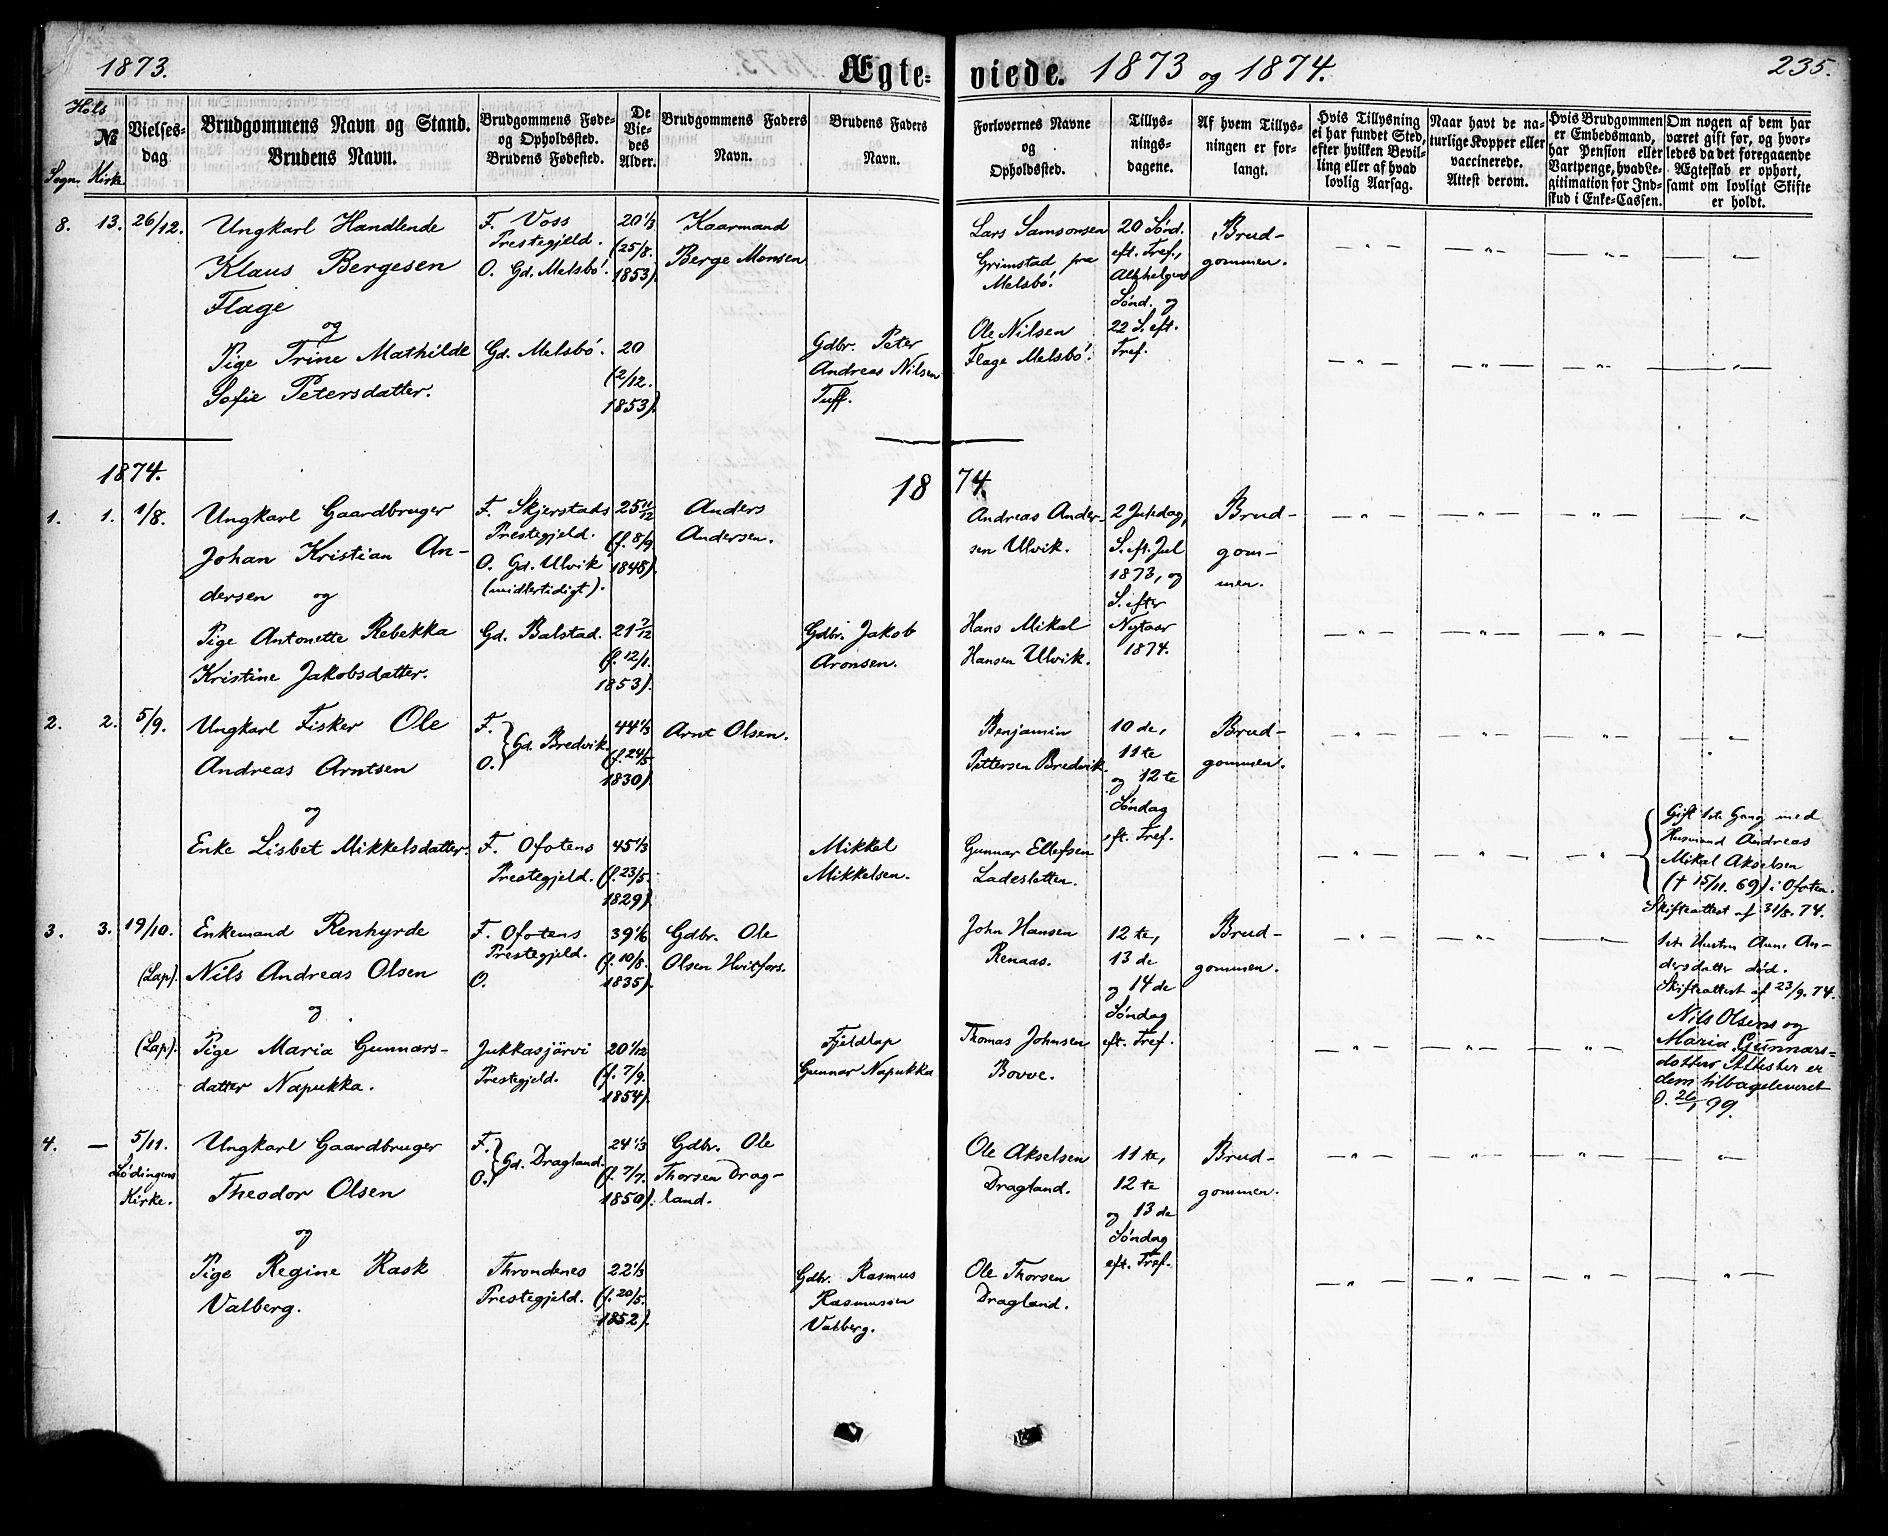 1873.
Ægte-
viede. 1873 og 1874.
235.
Hols
№
Sogn. Kirke
Vielses-
dag
Brudgommens Navn og Stand.
Brudens Navn.
Brudgommens Føde-
og Opholdssted.
Brudens Fødested.
De
Vie-
des
Alder.
Brudgommens Faders
Navn.
Brudens Faders
Navn.
Forlovernes Navne
og
Opholdssted.
Tillys-
nings-
dagene.
Af hvem Tillys-
ningen er for-
langt.
Hvis Tillysning
ei har fundet Sted,
efter hvilken Bevil-
ling eller af hvad
lovlig Aarsag.
Naar havt de na-
turlige Kopper eller
vaccinerede.
Attest derom.
Hvis Brudgommen
er Embedsmand,
har Pension eller
Vartpenge, hvad Le-
gitimation for Ind-
skud i Enke-Cassen.
Om nogen af dem har
været gift før, og hvor-
ledes da det foregaaende
Ægteskab er ophørt,
samt om lovligt Skifte
er holdt.
8. 13. 26/12.
Ungkarl Handlende
Klaus Bergesen
Flage
og
Pige Trine Mathilde
Sofie Petersdatter.
F. Voss
Prestegjeld.
O. Gd. Melsbö.
Gd. Melsbö.
20 1/3
(25/8.
1853).
20
(2/12.
1853).
Kaarmand
Berge Monsen
Gdbr. Peter
Andreas Nilsen
Tuff.
Lars Samsonsen
Grimstad fra
Melsbö.
Ole Nilsen
Flage Melsbö.
20 Sönd.
eft. Tref.,
Allehelgens
Sönd. og
22 S. eft.
Tref.
Brud-
gommen.
1874.
18 74.
1. 1. 1/8.
Ungkarl Gaardbruger
Johan Kristian An-
dersen og
Pige Antonette Rebekka
Kristine Jakobsdatter.
F. Skjerstads
Prestegjeld.
O. Gd. Ulvik
(midlertidigt).
Gd. Balstad.
25 11/12
(f. 8/9
1848).
21 7/12
(f. 12/1.
1853).
Anders
Andersen.
Gdbr. Jakob
Aronsen.
Andreas Ander-
sen Ulvik.
Hans Mikal
Hansen Ulvik.
2 Juledag,
S. eft. Jul
1873, og
S. efter
Nytaar
1874.
Brud-
gom-
men.
2. 2. 5/9.
Ungkarl Fisker Ole
Andreas Arntsen
og
Enke Lisbet Mikkelsdatter.
F.
O. } Gd. Bredvik.
F. Ofotens
Prestegjeld.
44 1/3
(f. 24/5
1830).
45 1/3
(f. 23/5.
1829).
Arnt Olsen.
Mikkel
Mikkelsen.
Benjamin
Pettersen Bredvik.
Gunnar Ellefsen
Ladesletten.
10 de,
11 te
og 12 te
Söndag
eft. Tref.
Brud-
gommen.
Gift 1ste Gang med
Husmand Andreas
Mikal Akselsen
(† 15/11. 69) i Ofoten.
Skifteattest af 31/8. 74.
3. 3. 19/10.
(Lap).
Enkemand Renhyrde
Nils Andreas Olsen
og
(Lap).
Pige Maria Gunnars-
datter Napukka.
F. Ofotens
Prestegjeld.
O.
Jukkasjärvi
Prestegjeld.
39 1/6
(f. 10/8.
1835).
20 1/12
(f. 7/9.
1854).
Gdbr. Ole
Olsen Hvitfors.
Fjeldlap
Gunnar Napukka
John Hansen
Renaas.
Thomas Johnsen
Bovve.
12 te,
13 de
og 14 de
Söndag
eft. Tref.
Brud-
gommen.
1ste Hustru Anne An-
dersdatter död.
Skifteattest af 23/9. 74.
Nils Olsens og
Maria Gunnars-
dotters Attester er
dem tilbageleveret
O. 26/1 99.
4. — 5/11.
Lödingens
Kirke.
Ungkarl Gaardbruger
Theodor Olsen
og
Pige Regine Rask
Valberg.
F.
O. } Gd. Dragland.
Throndenes
Prestegjeld.
24 1/3
(f. 7/7.
1850).
22 1/3
(f. 20/5.
1852).
Gdbr. Ole
Thorsen Drag-
land.
Gdbr. Rasmus
Rasmussen
Valberg.
Ole Akselsen
Dragland.
Ole Thorsen
Dragland.
11 te,
12 te
og 13 de
Söndag
eft. Tref.
Brud-
gommen.